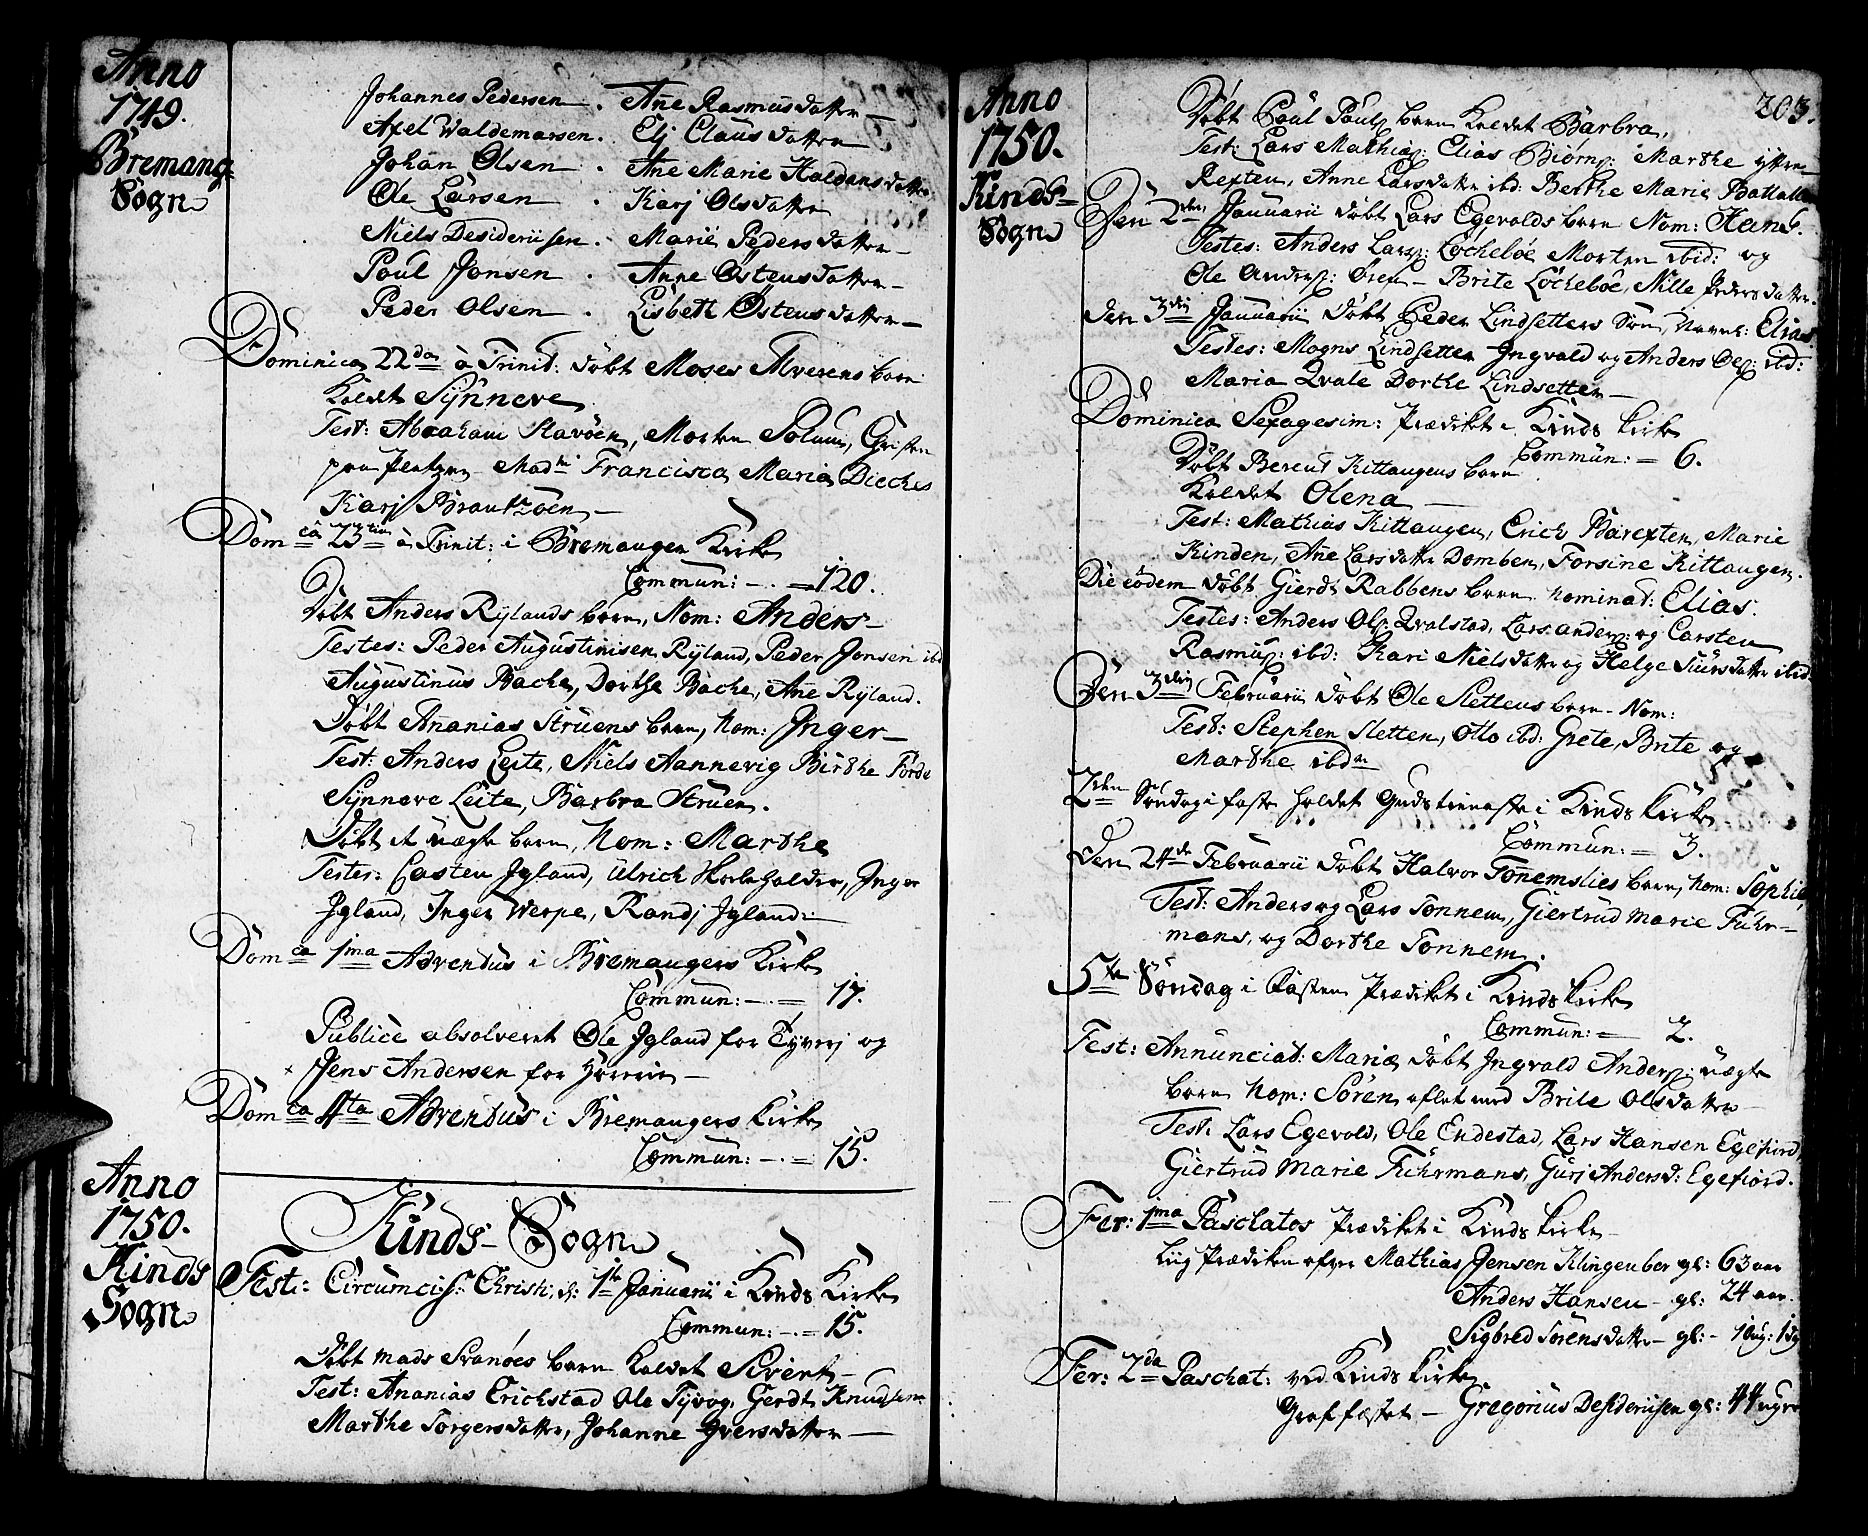 Anno
1749.
Bremang:
Sogn
Johannes Pedersen . Ane Rasmusdatter
Axel Waldemarsen . Elj Clausdatter
Johan Olsen . Ane Marie Haldansdatter
Ole Larsen . Karj Olsdatter
Niels Desideriisen . Marie Pedersdatter
Poul Jonsen . Anne Østensdatter
Peder Olsen . Lisbeth Østensdatter
Dominica 22da à Trinit: døbt Moses Alverens barn
kaldet Sÿnneve
Test: Abraham Havöen, Morten Solum,
Madm Francisca Maria Dieches
Karj
Domca 23tia à Trinit: i Bremanger Kirke
Commun: — . = 120.
Døbt Anders Rÿlands barn, Nom: Anders
Testes: Peder Augustinisen Rÿland, Peder Jonsen ibd
Augustinus Bache, Dorthe Bache, Ane Rÿland.
Døbt Ananias Strúens barn, Nom: Inger
Test: Anders Leite, Niels Aannevig Birthe Förde
Sÿnneve Leite, Barbra Strúen.
Døbt et uægte barn, Nom: Marthe
Testes: Casten Igland, Ulrich, Inger
Igland, Inger Werpe, Randj Igland
Domca 1ma Adventus i Bremangers Kirke
Commun: — . = 17.
Publice absolveret Ole Igland for Tÿverj og
Jens Andersen for Horerie
Domca 4ta Adventus i Bremangers Kirke
Commun: — . = 15.
Anno
1750.
Kinds
Sogn
Kinds-Sogn
Fest: Circumcis: Christi, d: 1te Januarii i Kinds Kirke
Commun: — . = 15.
Døbt Mads Svanöes barn kaldet Sivert
Test: Ananias Erichstad Ole Tÿvog, Gerdt Knudsen
Marthe Torgersdatter, Johanne Iversdatter
Anno
1750.
Kinds-
Sogn
203.
Døbt Poul Pouls: barn kaldet Barbra,
Test: Lars Mathias: Elias Biörns: Marthe ytter
Rexten, Anne Larsdatter ibd: Berthe Marie
Den 2den Januarii døbt Lars Egevolds barn Nom: Hans.
Testes: Anders Lars: Löcheböe Morten ibid: og
Ole Anders: Brite Löcheböe, Nille Pedersdatter.
den 3die Januarii døbt Peder Lindsetters Søn, Navnl: Elias
Testes: Mogns Lindsetter Ingvald og Anders ibd:
Maria Qvale Dorthe Lindsetter
Dominica Sexagesim: Prædiket i Kinds Kirke
Commun: = 6.
Døbt Berent Kittangens barn
kaldet Olena
Test: Mathias Kittangen, Erich Barexten, Marie
Kinden, Ane Larsdatter Domben, Torsine Kittangen.
Die eodem døbt Gierdt Rabbens barn nominat: Elias.
Testes: Anders Ols: Qvalstad, Lars Anders: og Carsten
Rasmus: ibd: Kari Nielsdatter og Helge datter ibid
Den 3die Februarii døbt Ole Slettens barn Nom:
Test: Stephen Sletten, Otto ibd: Grete, Brite og
Marthe ibdm
2den Søndag i faste holdet Gudstieneste i Kinds Kirke
Commun: = 3.
Den 24de Februarii døbt Halvor Tonemslies barn, Nom: Sophie
Test: Anders og Lars Tonnem, Giertrud Marie Fuhr-
mans, og Dorthe Tonnem.
5te Søndag i Fasten Prædiket i Kinds Kirke
Commun: = 2.
Fest: Annunciat: Mariæ døbt Ingvald Anders: uægte
barn Nom: Søren aflet med Brite Olsdatter
Test: Lars Egevold, Ole Endestad, Lars Hansen Egefiord,
Giertrud Marie Fuhrmans, Guri Andersd: Egefiord.
Fer: 1ma Paschatos Prædiket i Kinds Kirke
Liig Prædiken ofver Mathias Jensen Klingenber gl: 63 aar
Anders Hansen gl: 24 aar.
Sigbred Sörensdatter gl: 1 ug: 1 dg
Fer: 2da Paschat: ved Kinds Kirke
Graffæstet — Gregorius Desideriisen gl: 44 uger